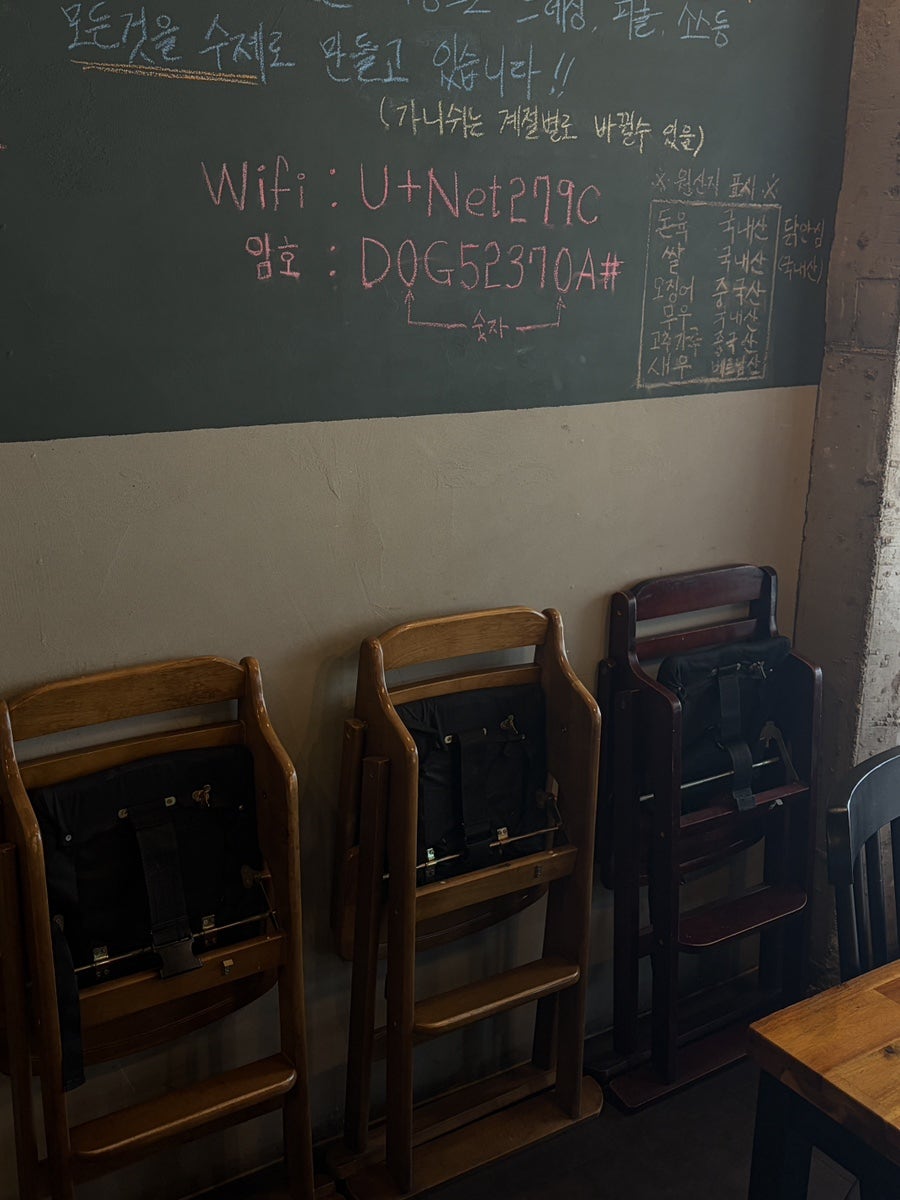 수제, 피클, 소스등
모든것을 수제로 만들고 있습니다!!
(가니쉬는 계절별로 바뀔수 있음)
Wifi : U+Net279C
암호 : D0G52370A#
숫자
※ 원산지 표시 ※
돈육 국내산 닭안심
쌀 국내산 (국내산)
오징어 중국산
무우 국내산
고추가루 중국산
새우 베트남산